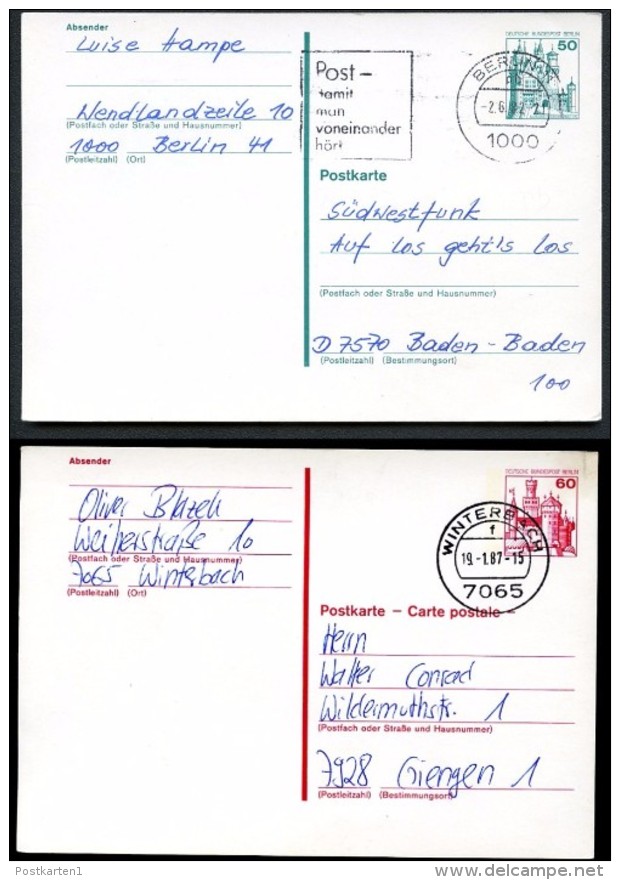 Absender
Luise Hampe
Wendlandzeile 10
(Postfach oder Straße und Hausnummer)
1000 Berlin 41
(Postleitzahl) (Ort)
Post-
damit
man
voneinander
hört
BERLIN
-2.6.
1000
DEUTSCHE BUNDESPOST BERLIN
50
Postkarte
Südwestfunk
Auf los geht's los
(Postfach oder Straße und Hausnummer)
D 7570 Baden-Baden
(Postleitzahl) (Bestimmungsort)
100
Absender
Oliver
Weiherstraße 10
(Postfach oder Straße und Hausnummer)
7065 Winterbach
(Postleitzahl) (Ort)
DEUTSCHE BUNDESPOST BERLIN
60
WINTERBACH
f
19.-1.87-15
7065
Postkarte – Carte postale –
Herrn
Walter Conrad
Wildermuthstr. 1
(Postfach oder Straße und Hausnummer)
7928 Giengen 1
(Postleitzahl) (Bestimmungsort)
Postkarten1
delcampe.net